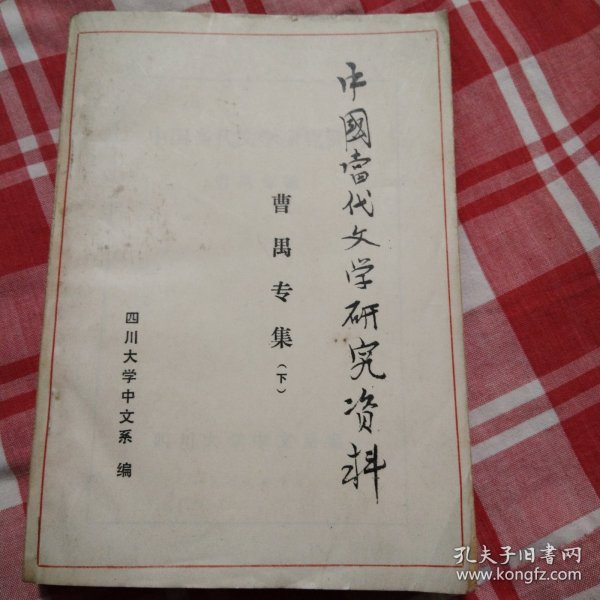 中國當代文学研究资料
曹禺专集(下)
四川大学中文系 编
孔夫子旧书网
www.kongfz.com